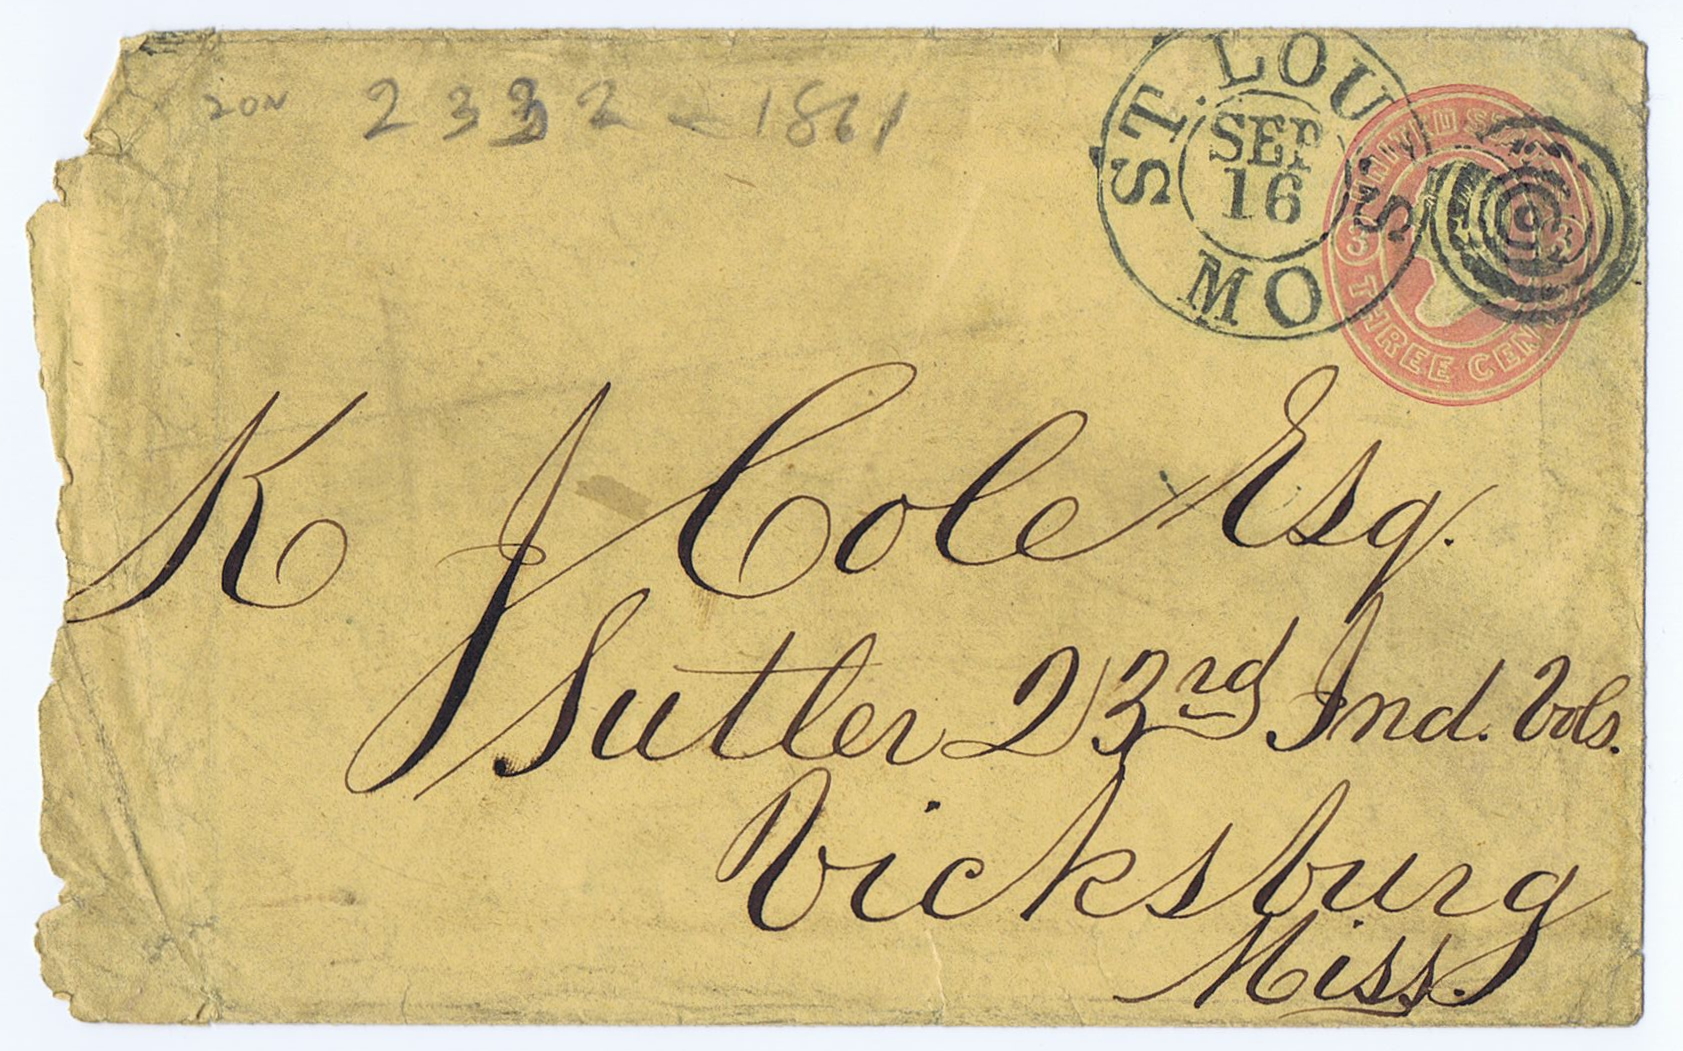 2332 - 1861
ST. LOUIS
SEP
16
MO
UNITED STATES
3 3
THREE CENTS
K J Cole Esq.
Sutler 23rd Ind. Vols.
Vicksburg
Miss.